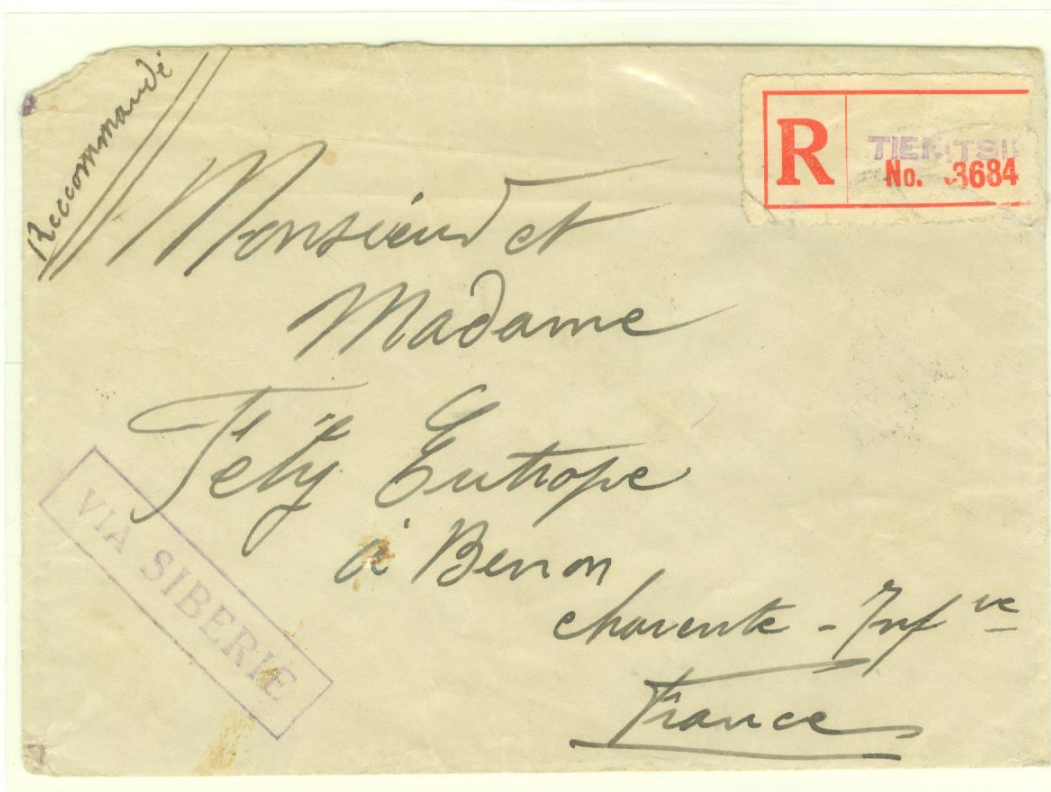 Reccommandé
R
TIENTSIN
No. 3684
Monsieur et
Madame
Eutrope
à Benon
charente - Infre
France
VIA SIBERIE